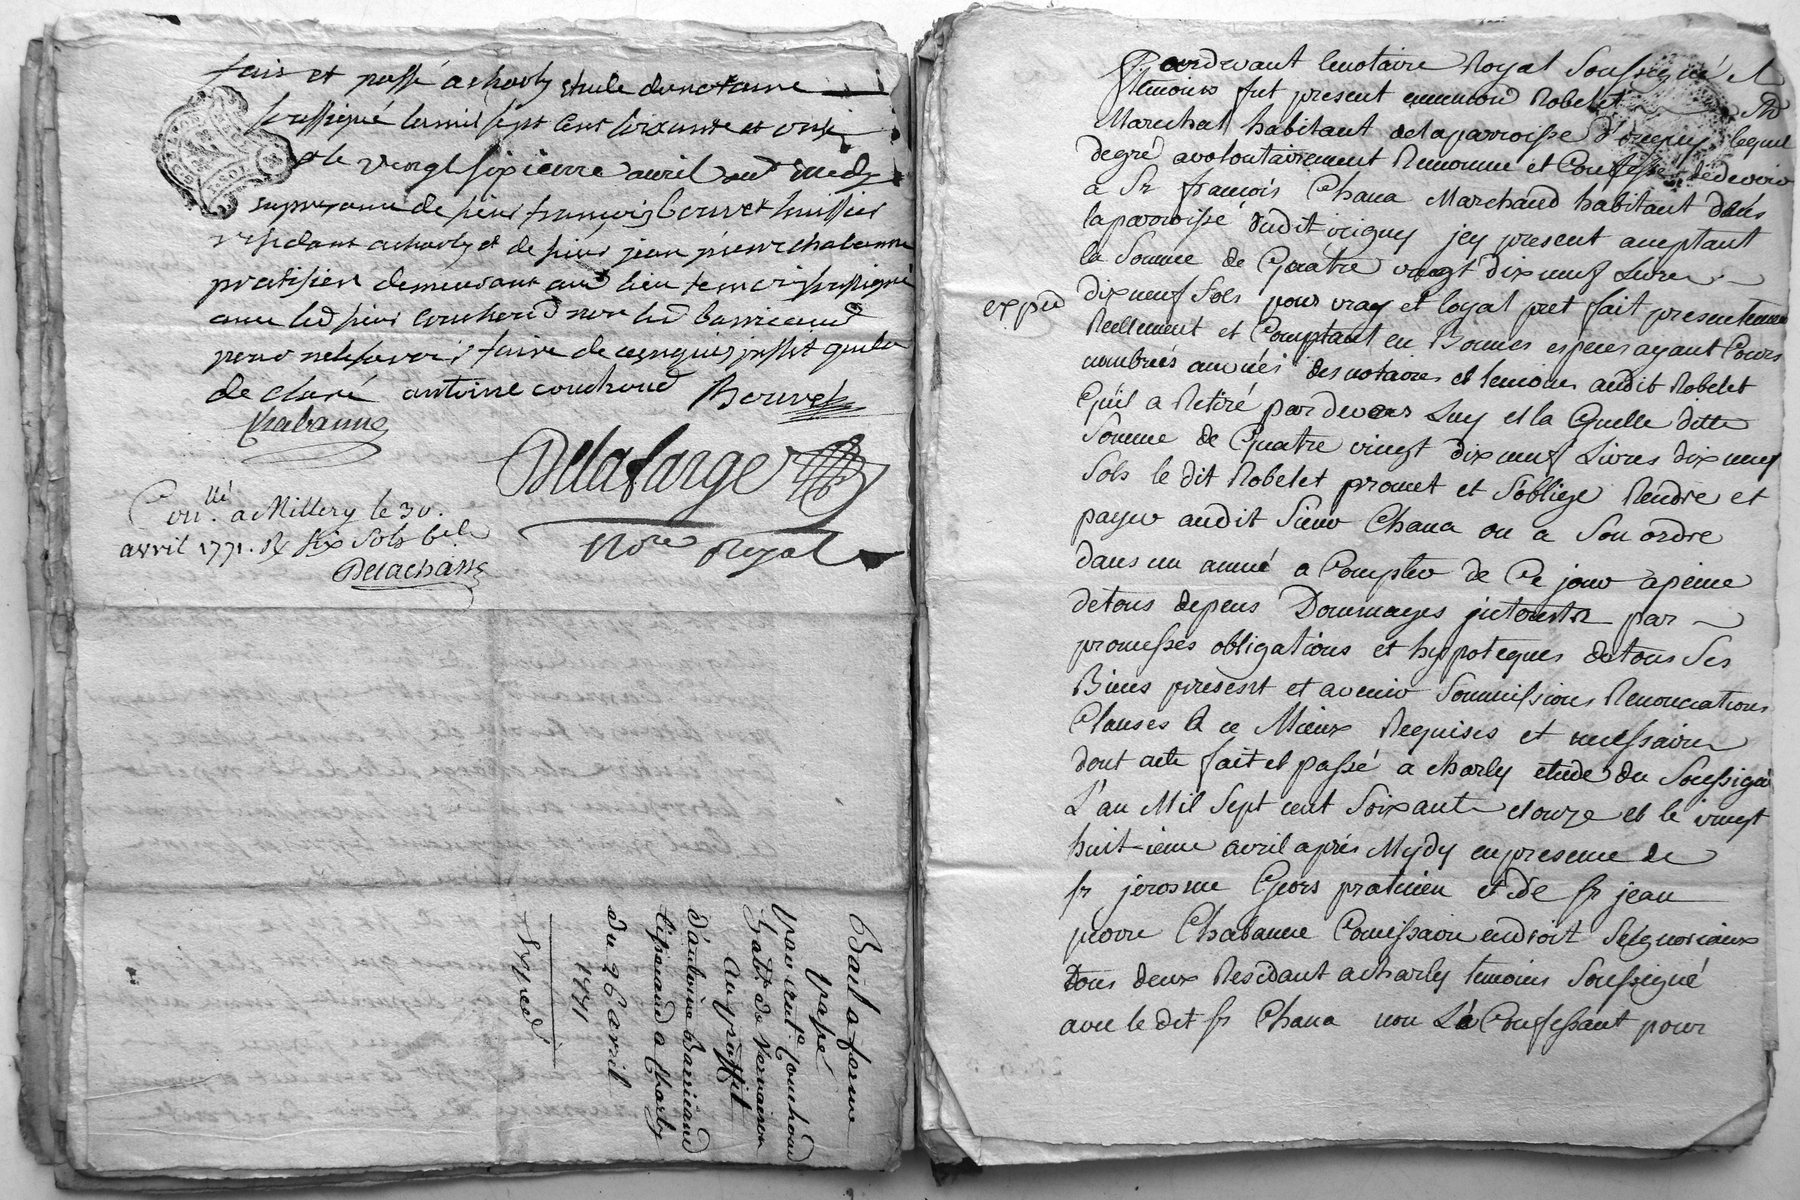 fait et passé a charly etude du notaire
soussigné l'an mil sept cent soixante et onze
et le vingt sixieme avril avt midy
en presence de sieur françois bouvet huissier
residant a charly et de sieur jean pierre chabanne
praticien demeurant aud lieu temoins soussigné
avec led sieur couchoud non led barricand
pour ne scavoir faire de ce enquis
declaré antoine couchoud Bouvet
Chabanne
Delafarge
Nore Royal
Con.llé a Millery le 30.
avril 1771. R Six Sols
Delachass
Bail a ferme
passé
par ant.e Couchoud
habt de Vernaison
Au proffit
d'antoine Barricand
a Charly
du 26 avril
1771
Expéd
Pardevant le notaire Royal Soussigné et
temoins fut present Robelet
Marechal habitant de la parroisse d'irigny lequel
de gré a volontairement Reconnu et Confessé de devoir
a Sr françois Chana Marchand habitant dans
la parroisse dudit irigny icy present acceptant
la Somme de Quatre vingt dix neuf Livres
dix neuf Sols pour vray et loyal pret fait presentement
expéd
Reellement et Comptant en Bonnes especes ayant Cours
nombrées au vües des notaires et temoins audit Robelet
Qu'il a Retiré pardevers Luy et la Quelle ditte
Somme de Quatre vingt dix neuf Livres dix neuf
Sols le dit Robelet promet et S'obliege Rendre et
payer audit Sieur Chana ou a Son ordre
dans un année a Compter de Ce jour a peine
de tous depens Dommages par
promesses obligations et hypoteques de tous Ses
Biens present et avenir Soumissions Renonciations
Clauses A ce Mieux Requises et necessaires
dont acte fait et passé a charly etude du Soussigné
L'an Mil Sept cent Soixante et onze et le vingt
huitieme avril aprés Mydy en presence de
sr jerosme Geors praticien et de sr jean
pierre Chabanne Comissaire en droit Seigneuriaux
Tous deux Residant a charly temoins Soussigné
avec le dit sr Chana non Le Confessant pour